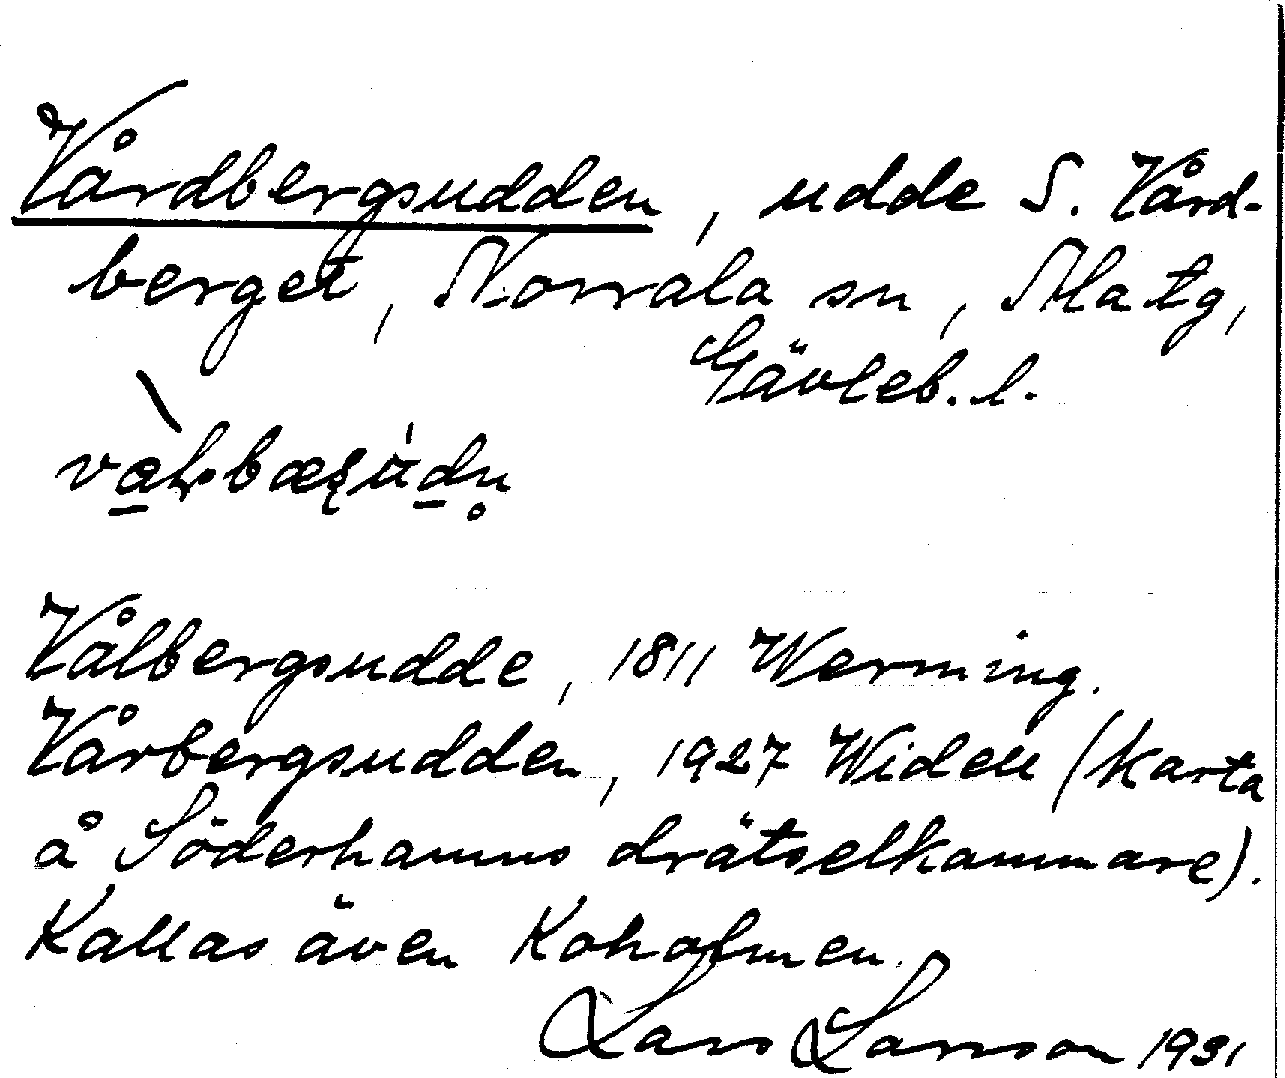 Vårdbergsudden, udde S. Vård-
berget, Norrala sn, Ala tg,
Gävleb. l.
Vålbergsudde, 1811 Werming.
Vårbergsudden, 1927 Widell (karta
å Söderhamns drätselkammare).
Kallas även Koholmen.
Lars Larsson 1931